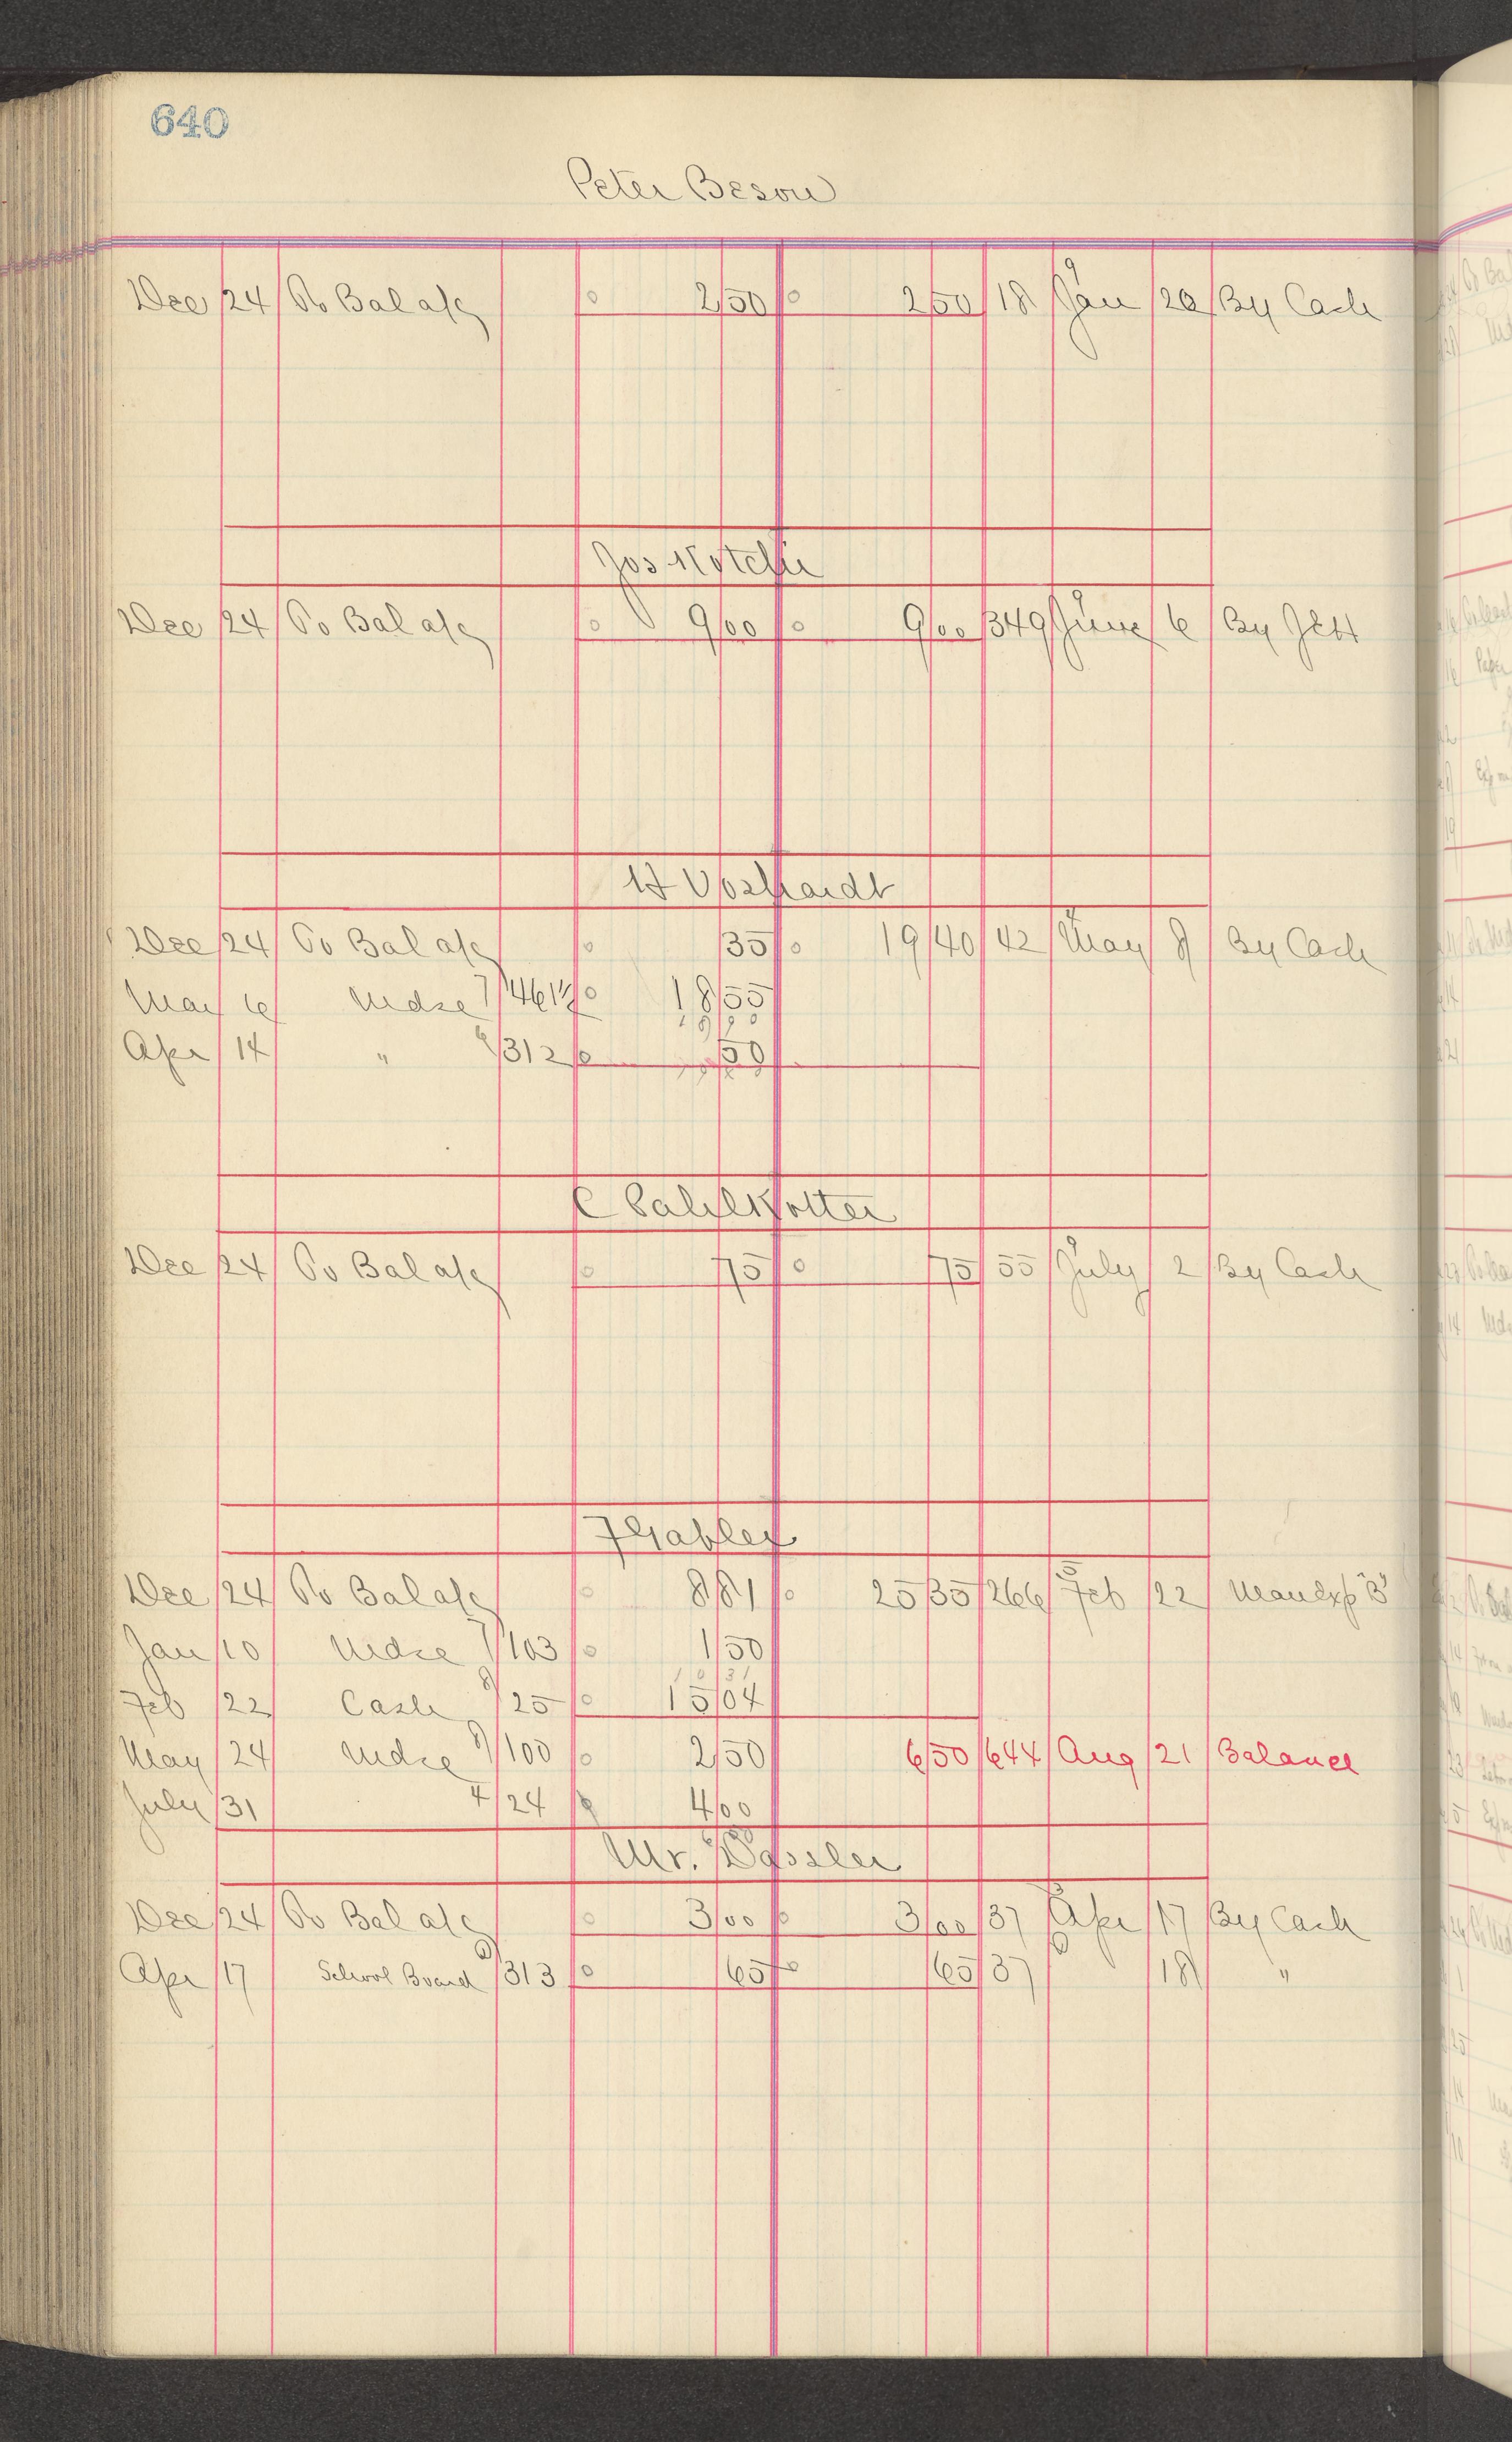 640
Peter Beson
Dec 24 To Bal a/c 2 50 2 50 18 9 Jan 20 By Cash
Jos
Dec 24 To Bal a/c 9 00 9 00 349 June 6 By
H Voshardt
Dec 24 To Bal a/c 35 19 40 42 May 8 By Cash
Mar 6 Mdse 7/461½ 18 55
18 90
Apr 14 " 312 50
C Pahlkotter
Dec 24 To Bal a/c 75 75 55 9 July 2 By Cash
F Gabler
Dec 24 To Bal a/c 8 81 25 35 266 5 Feb 22 Man Exp "B"
Jan 10 Mdse 7/103 1 50
10 31
Feb 22 Cash 25 15 04
May 24 Mdse 100 2 50 6 50 644 Aug 21 Balance
July 31 4/24 4 00
Mr. Dassler
Dec 24 To Bal a/c 3 00 3 00 37 Apr 17 By Cash
Apr 17 School Board 313 65 65 37 18 "